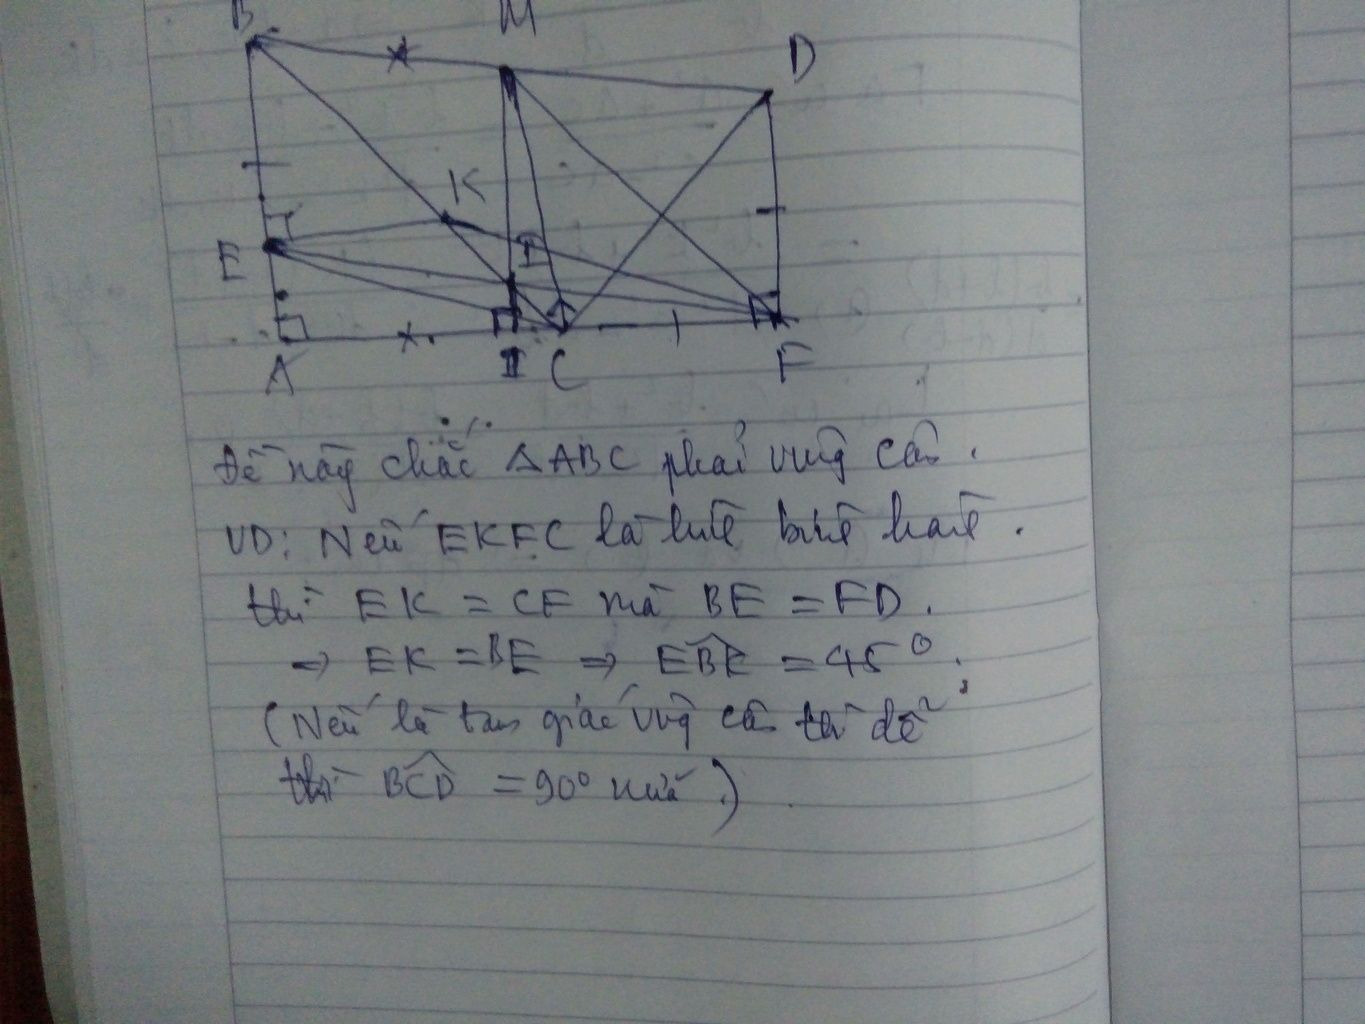 B M
D
K
E I
A I C F
Đề này chắc △ABC phải vuông cân.
VD: Nếu EKFC là hình bình hành.
thì EK = CF mà BE = FD.
⇒ EK = BE ⇒ EBK = 45°.
(Nếu là tam giác vuông cân thì dễ
thì BCD = 90° nữa.)